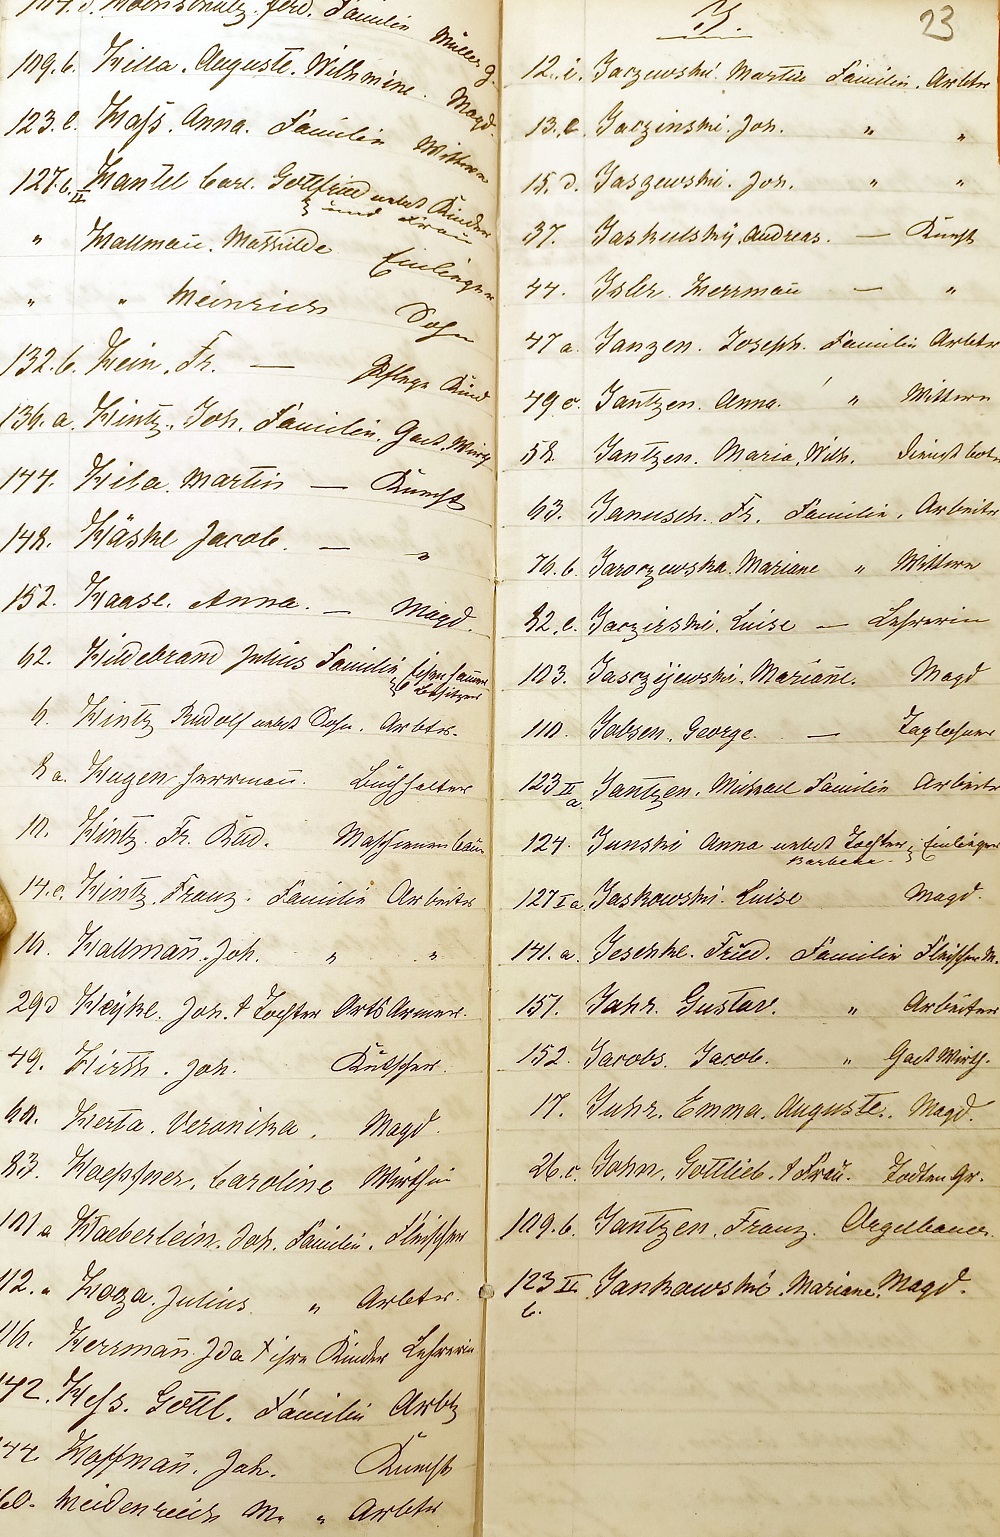 109.b. Hilla. Auguste. Wilhmine. Magd.
123.e. Hass. Anna. Familie Wittwe
127.b. II Hantel Carl. Gottfried nebst Kinder
und Frau
" Hallmañ. Mathilde Einlieger
" " Heinrich Sohn
132.b. Hein. Fr. — Pflege Kind
136.a. Hintz. Joh. Familie. Gast Wirth
144. Hila. Martin — Knecht
148. Häske Jacob. — "
152. Haase. Anna. — Magd.
62. Hildebrand Julius Familie
6. Hintz Rudolf nebst Sohn. Arbtr.
8 a. Hagen Herrmañ. Buchhalter
10. Hintz. Fr. Rud. Maschienenbau
14.c. Hintz. Franz. Familie Arbeiter
16. Hallmañ. Joh. " "
29d Heyke. Joh. + Tochter Arts Armer.
49. Hirth. Joh. Kutscher.
60. Herta. Veronika. Magd.
83. Hoepfner. Caroline Wirthin
101 a Haeberlein. Joh. Familie. Fleischer
112. " Hoga. Julius " Arbeter.
116. Herrmañ. Ida + ihre Kinder Lehrerin
142. Hess. Gottl. Familie Arbtr
144. Hoffmañ. Joh. Knecht
60. Heidenreich M. " Arbeter
J. 23
12.i. Jarzewski Martin Familie. Arbeter
13.e. Jarzinski. Joh. " "
15.d. Jaszewski. Joh. " "
37. Jaskulský. Andreas. — Knecht
44. Isler. Herrmañ — "
47 a. Janzen. Joseph. Familie Arbeter
49 c. Jantzen. Anna. " Wittwe
58. Jantzen. Maria. Wilh. Dienstbote
63. Janusch. Fr. Familie. Arbeiter
76.b. Jaroczewska Mariane " Wittwe
82.e. Jarzinski. Luise — Lehrerin
103. Jasczÿjewski. Mariañe. Magd
110. Jobsen. George. — Taglohner
123 II a. Jantzen. Michael Familie Arbeiter
124. Junski Anna nebst Tochter Einlieger
Barbara
127 I a. Jaskowski. Luise Magd.
141.a. Jeschke. Fried. Familie Fleischer M.
151. Jahr. Gustav. " Arbeiter
152. Jacobs. Jacob. " Gast Wirth.
17. Juhr. Emma. Auguste. Magd.
26.c. John. Gottlieb. + Frau. Todten Gr.
109.b. Jantzen. Franz. Orgelbauer.
123 II Jankowski. Mariane. Magd.
b.